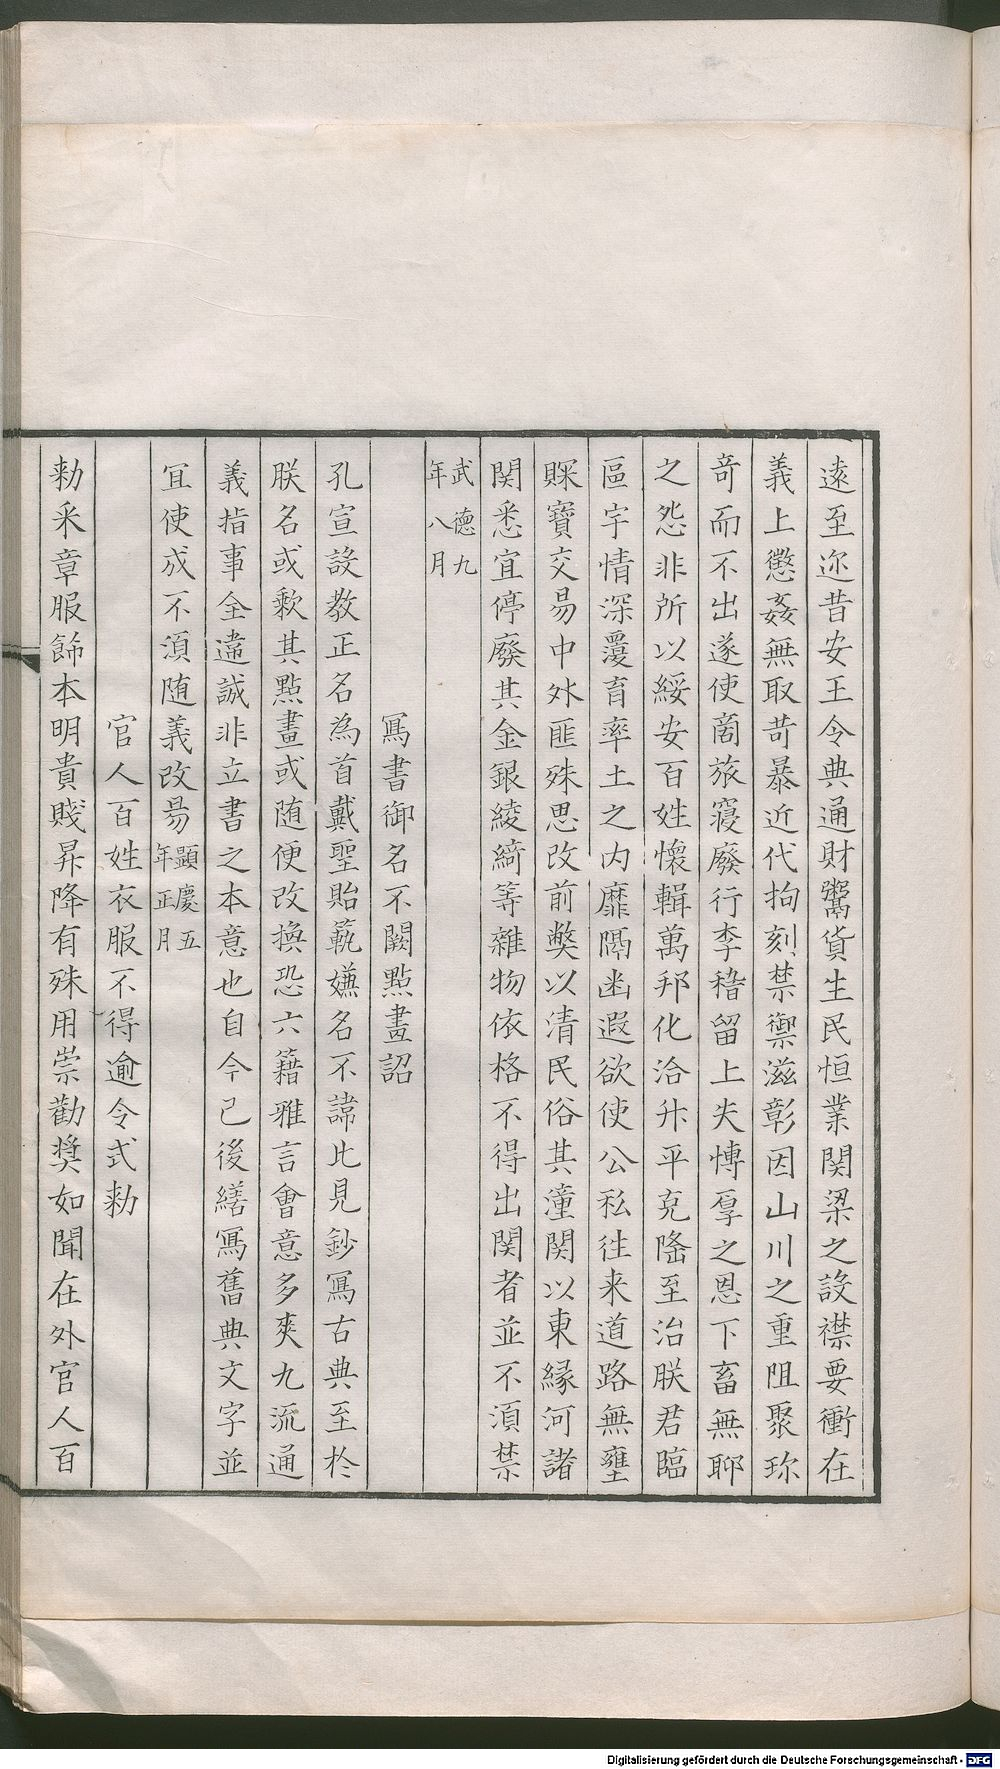 遠至迩昔安王令典通財鬻貨生民恒業関梁之設襟要衝在
義上懲姦無取苛暴近代拘刻禁禦滋彰因山川之重阻聚珎
奇而不出遂使啇旅寑廢行李稽留上失愽厚之恩下畜無聊
之怨非所以綏安百姓懷輯萬邦化洽升平克隆至治朕君臨
區宇情深覆育率土之内靡隔幽遐欲使公私徃来道路無壅
賝寶交昜中外匪殊思改前弊以清民俗其潼関以東縁河諸
関悉宜停廢其金銀綾綺等雜物依格不得出関者並不湏禁
武德九年八月
寫書御名不闕點畫詔
孔宣設教正名為首戴聖貽範嫌名不諱比見鈔寫古典至於
朕名或欶其點畫或随便改換恐六籍雅言會意多爽九流通
義指事全違誠非立書之本意也自今已後繕寫舊典文字並
冝使成不湏随義改昜顕慶五年正月
官人百姓衣服不得逾令式勑
勑采章服飾本明貴賤昇降有殊用崇勸奬如聞在外官人百
Digitalisierung gefördert durch die Deutsche Forschungsgemeinschaft - DFG